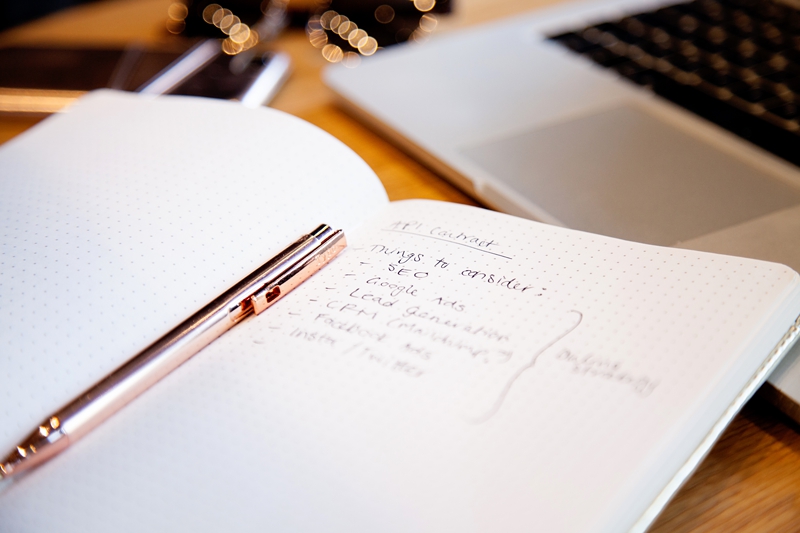 API Contract
Things to consider:
- SEO
- Google Ads
- Lead Generation
- CRM (Mailchimp)
- Facebook Ads
- Insta / Twitter
Online
strategy